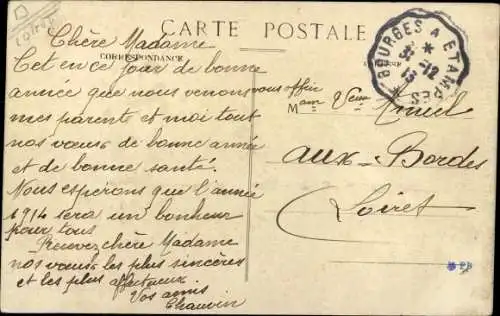 LOIRET
CARTE POSTALE
CORRESPONDANCE
BOURGES A ETAMPES
31 -12
13
Chère Madame
Cet en ce jour de bonne
année que nous venons vous offrir
mes parents et moi tout
nos vœux de bonne année
et de bonne santé.
Nous espérons que l'année
1914 sera un bonheur
pour tous
Recevez chère Madame
nos vœux les plus sincères
et les plus affectueux.
Vos amis
Chauvin
Mam Veuve
aux-Bordes
Loiret